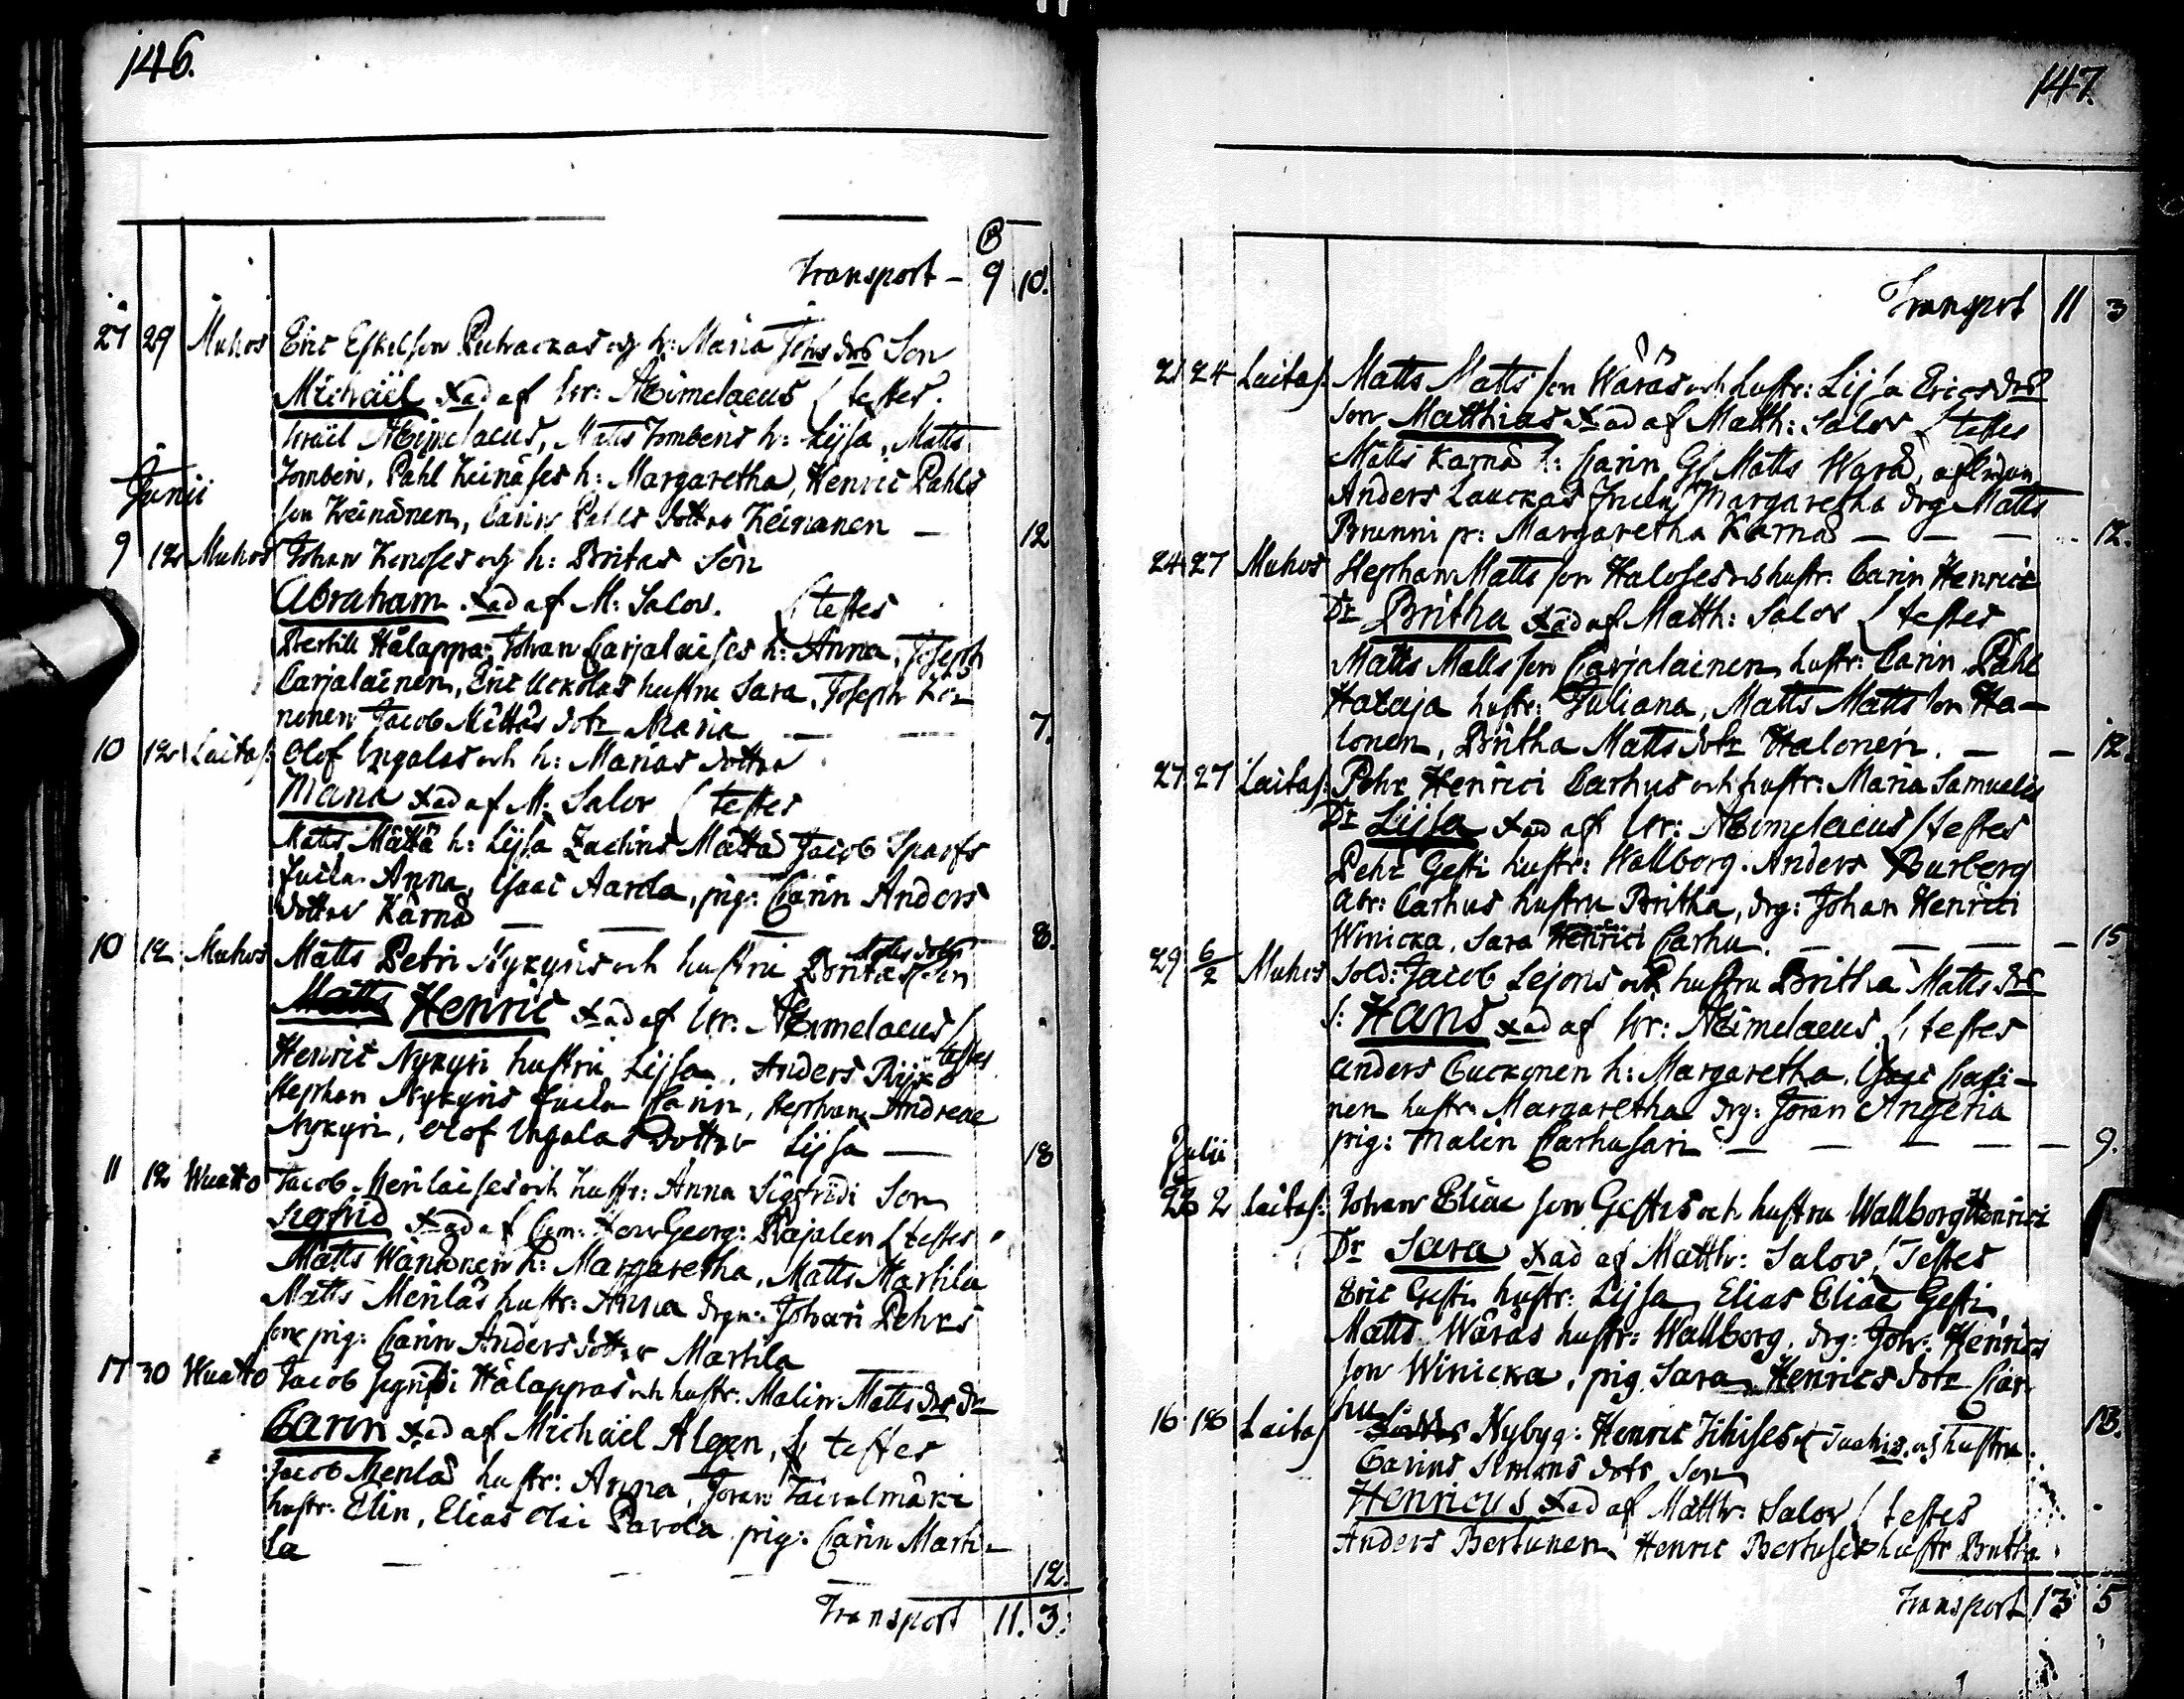 146.
B
Transport - 9 10.
27 29 Muhos Eric Eskelson Puhackas och h: Maria Johs dotr Son
Michaël Xad af hr: Æimelaeus / testes.
Israël Æimelaeus, Matts Tombens h: Lijsa, Matts
Tomben, Påhl Keinäses h: Margaretha, Henric Påhls
Junii
son Keinänen, Carin Påhls dotter Keinänen - 12
9 12 Muhos Johan Kenoses och h: Britas Son
Abraham Xad af M: Salov. / testes
Bertill Hålappa, Johan Carjalaises h: Anna, Joseph
Carjalainen, Eric Uckolas hustru Sara, Joseph Ko-
nonen Jacob Mättäs dotr Maria - - 7.
10 12 Laitas: Olof Ungalas och h: Marias dotter
Maria Xad af M: Salov / testes
Matts Mättä h: Lijsa Zachris Mättä Jacob Sparfs
Encka Anna, Isaac Aarola, pig: Carin Anders
dotter Kärnä - - - 8.
10 12 Muhos Matts Petri Nykyris och hustru Britas Matts dotr son
Matts Henric Xad af hr: Æimelaeus / testes
Henric Nykyri hustru Lijsa, Anders Rijko
Stephan Nykyris Encka Carin, Stephan Andreae
Nykyri, Olof Ungalas dotter Lijsa - 18
11 12 Wuatto Jacob Meriläises och hustr: Anna Sigfridi Son
Sigfrid Xad af Georg: Rajalen / testes
Matts Wänänen h: Margaretha, Matts Martila
Matts Meriläs hustr: Anna drgn: Johan Pehrs
son pig: Carin Anders dotter Martila
17 30 Wuatto Jacob Sigfridi Hålappas och hustr: Malin Matts dr Dr
Carin Xad af Michaël Algen, / testes
Jacob Merilä hustr: Anna, Joran Taivalmäki
hustr: Elin, Elias Olai Pavola pig: Carin Marti-
la - - - - 12.
Transport 11. 3.
147.
Transport 11 3
21 24 Laitas: Matts Matts son Wäräs och hustr: Lijsa Erics dr
son Matthias Xad af Matth: Salov / testes
Matts Kärnä h: Carin Matts Wärä,
Anders Lauckas Encka Margaretha drg Matts
Brunni p: Margaretha Kärnä - - - 12.
24 27 Muhos Stephan Matts son Haloses och hustr: Carin Henrics
Dr Britha Xad af Matth: Salov / testes
Matts Matts son Carjalainen hustr: Carin Påhl
Hataja hustr: Juliana, Matts Matts son Ha-
lonen, Britha Matts dotr Halonen. - - 12.
27 27 Laitas: Pehr Henrici Carhus och hustr: Maria Samuelis
Dr Lijsa Xad af hr: Æimelaeus / testes
Pehr Gesti hustr: Wallborg. Anders Burberg
Abr: Carhus hustru Britha, drg: Johan Henrici
Winicka, Sara Henrici Carhu. - - - 15
29 6/2 Muhos Sold: Jacob Lejons och hustru Britha Matts dr
S: Hans Xad af hr: Æimelaeus / testes
Anders Cuckonen h: Margaretha, Isac Casi-
nen hustr: Margaretha drg: Joran Angeria
pig: Malin Carhusari - - - - 9.
Julii
2 Laitas: Johan Eliae son Gestis och hustru Wallborg Henrici
Dr Sara Xad af Matth: Salov / Testes
Eric Gesti hustr: Lijsa, Elias Eliae Gesti,
Matts Wäräs hustr: Wallborg, drg: Joh: Henrics
son Winicka, pig Sara Henrics dotr Car
hu 13.
16 18 Laitas Nybyg: Henric hustru
Carins Simons dotr Son
Henricus Xad af Matth: Salov / testes
Anders Bertunen Henric Bertuses hustr Britha
Transport 13 5